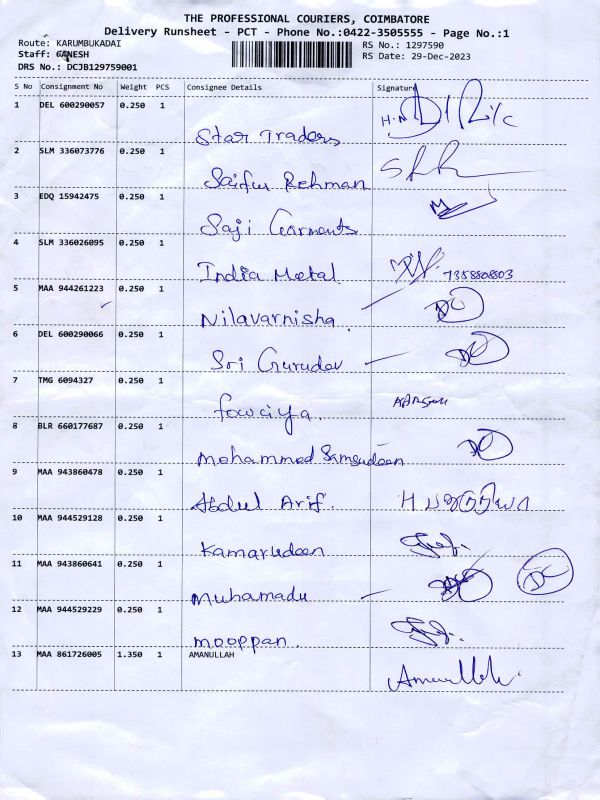 THE PROFESSIONAL COURIERS, COIMBATORE
Delivery Runsheet - PCT - Phone No.:0422-3505555 - Page No.:1
Route: KARUMBUKADAI
RS No.: 1297590
Staff: GANESH
RS Date: 29-Dec-2023
DRS No.: DCJB129759001
S No Consignment No Weight PCS Consignee Details Signature
1 DEL 600290057 0.250 1
Star Traders
2 SLM 336073776 0.250 1
Saifur Rehman
3 EDQ 15942475 0.250 1
Saji Garments
4 SLM 336026095 0.250 1
India Metal 735880803
5 MAA 944261223 0.250 1
Nilavarnisha
6 DEL 600290066 0.250 1
Sri Gurudev
7 TMG 6094327 0.250 1
fowciya.
8 BLR 660177687 0.250 1
Mohammed Samsudeen
9 MAA 943860478 0.250 1
Abdul Arif.
10 MAA 944529128 0.250 1
Kamarudeen
11 MAA 943860641 0.250 1
Muhamadu
12 MAA 944529229 0.250 1
mooppan.
13 MAA 861726005 1.350 1 AMANULLAH